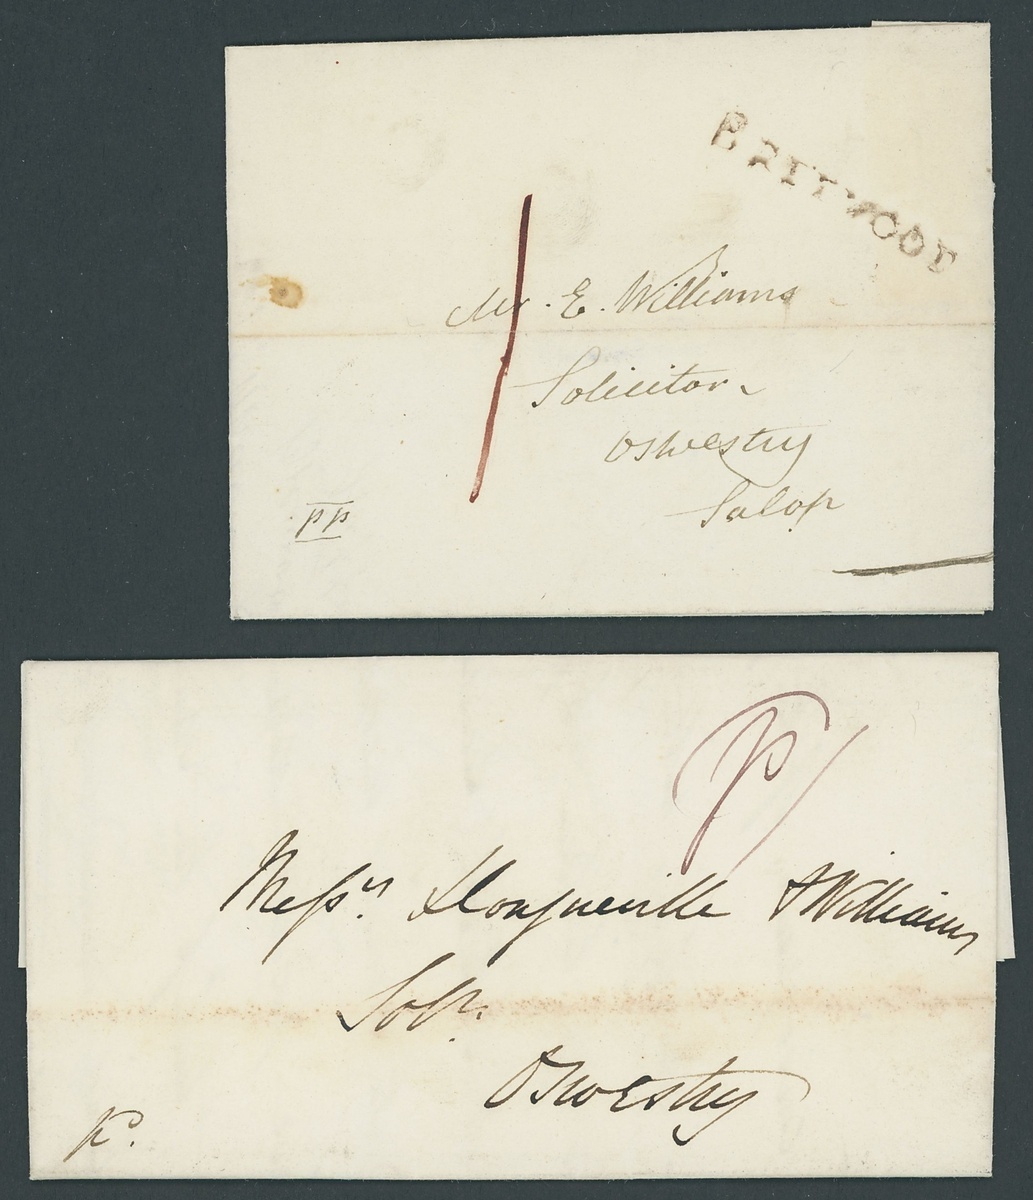 BRITWOOD
1
Mr. E. Williams
Solicitor
Oswestry
Salop
pp
P 1
Messrs. Longueville & Williams
Solrs.
Oswestry
pd.